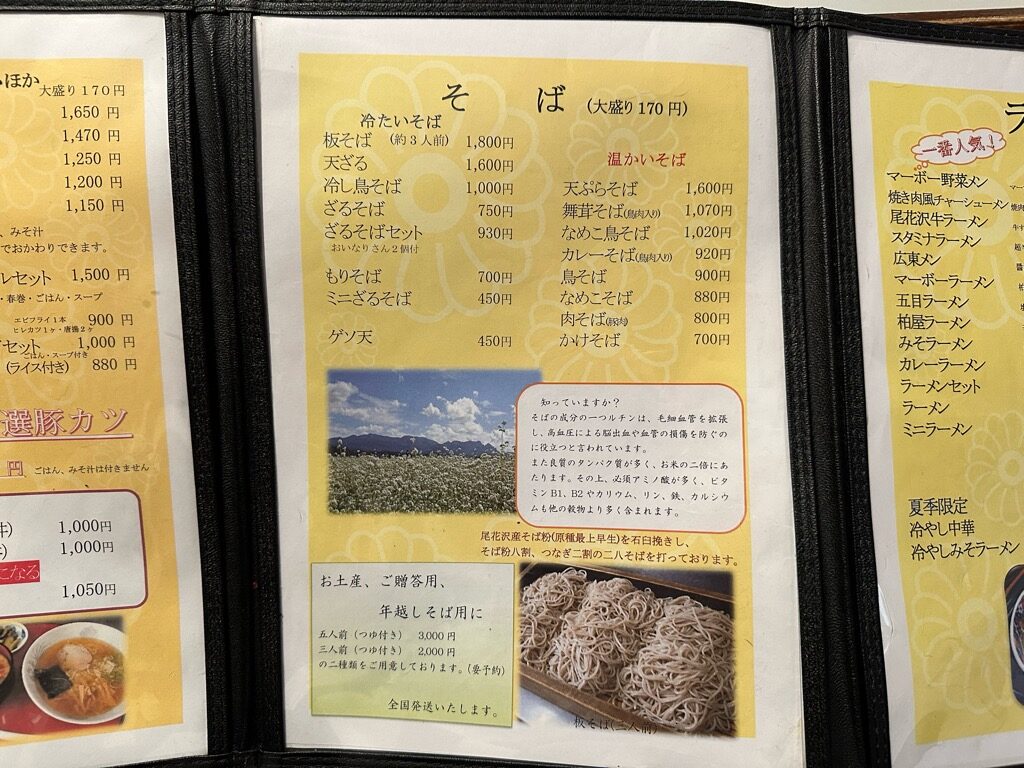 ほか
大盛り170円
1,650 円
1,470 円
1,250 円
1,200 円
1,150 円
、みそ汁
でおかわりできます。
レセット 1,500 円
・春巻・ごはん・スープ
エビフライ1本
ヒレカツ1ヶ・唐揚2ヶ
900 円
セット 1,000 円
ごはん・スープ付き
(ライス付き) 880 円
選豚カツ
円 ごはん、みそ汁は付きません
1,000円
1,000円
になる
1,050円
そば (大盛り170円)
冷たいそば
板そば (約3人前) 1,800円
天ざる 1,600円
冷し鳥そば 1,000円
ざるそば 750円
ざるそばセット 930円
おいなりさん2個付
もりそば 700円
ミニざるそば 450円
ゲソ天 450円
温かいそば
天ぷらそば 1,600円
舞茸そば(鳥肉入り) 1,070円
なめこ鳥そば 1,020円
カレーそば(鳥肉入り) 920円
鳥そば 900円
なめこそば 880円
肉そば(豚肉) 800円
かけそば 700円
知っていますか?
そばの成分の一つルチンは、毛細血管を拡張
し、高血圧による脳出血や血管の損傷を防ぐの
に役立つと言われています。
また良質のタンパク質が多く、お米の二倍にあ
たります。その上、必須アミノ酸が多く、ビタ
ミンB1、B2やカリウム、リン、鉄、カルシウ
ムも他の穀物より多く含まれます。
尾花沢産そば粉(原種最上早生)を石臼挽きし、
そば粉八割、つなぎ二割の二八そばを打っております。
お土産、ご贈答用、
年越しそば用に
五人前(つゆ付き) 3,000円
三人前(つゆ付き) 2,000円
の二種類をご用意しております。(要予約)
全国発送いたします。
板そば(三人前)
ラ
一番人気!
マーボー野菜メン
焼き肉風チャーシューメン
尾花沢牛ラーメン
スタミナラーメン
広東メン
マーボーラーメン
五目ラーメン
柏屋ラーメン
みそラーメン
カレーラーメン
ラーメンセット
ラーメン
ミニラーメン
夏季限定
冷やし中華
冷やしみそラーメン